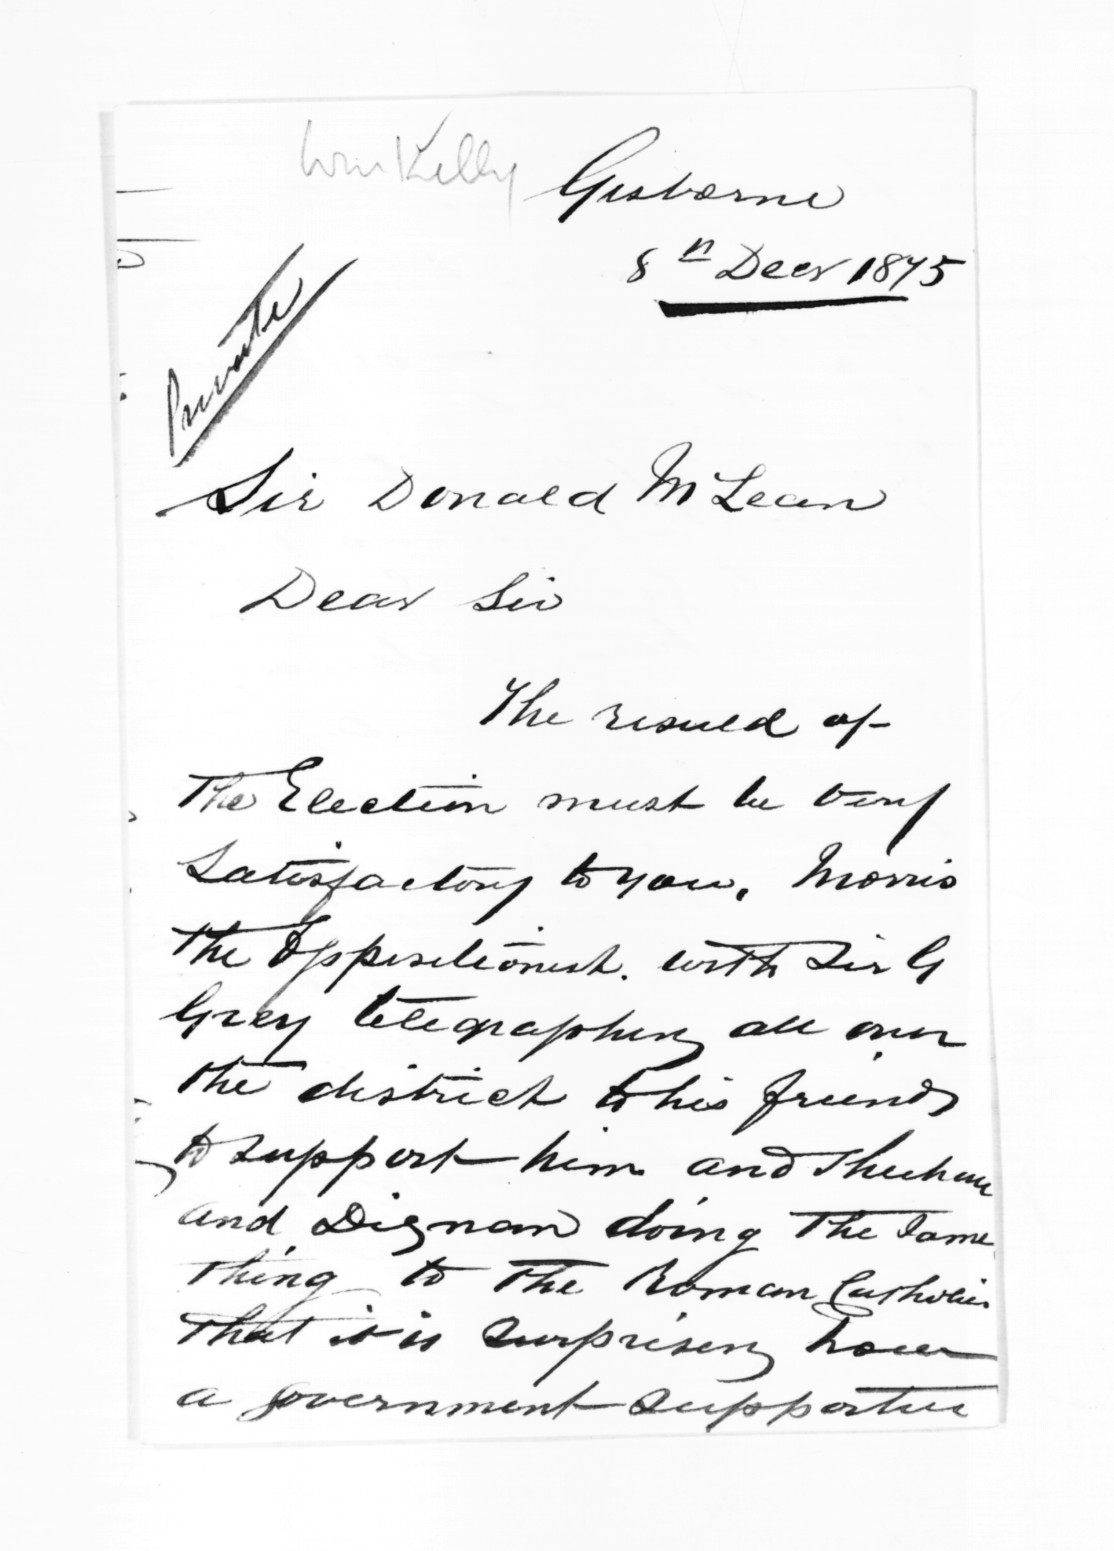 Wm Kelly
Gisborne
8th Decr 1875
Private
Sir Donald McLean
Dear Sir
The resuld of
the Election must be very
Satisfactory to you, Morris
the Oppositionist. with Sir G
Grey telegraphing all over
the district to his friends
to support him and Sheehan
and Dignan doing the same
thing to the Roman Catholics
that it is surprising how
a government supporter